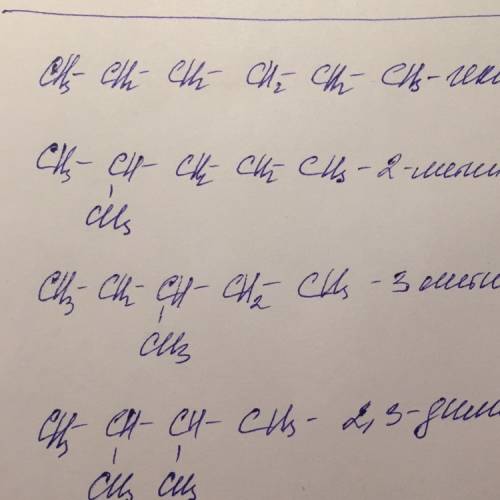 CH3- CH2- CH2- CH2- CH2- CH3- гекс
CH3- CH- CH2- CH2- CH3- 2-метил
CH3
CH3- CH2- CH- CH2- CH3 - 3 метил
CH3
CH3- CH- CH- CH3- 2,3-диме
CH3 CH3